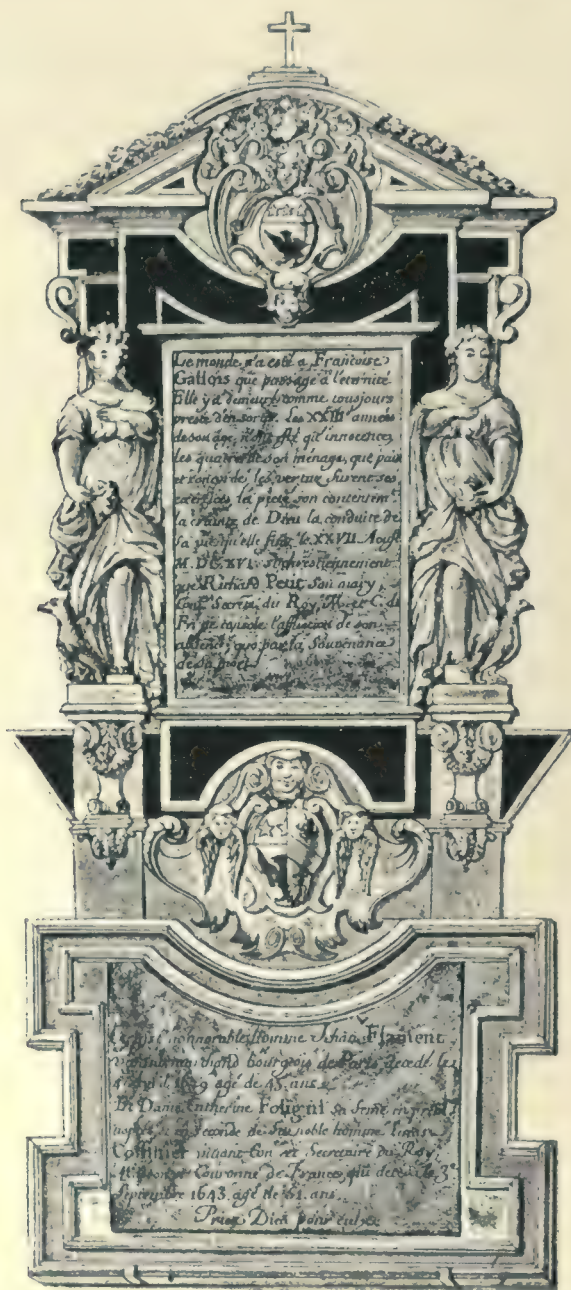 Le monde n'a esté a Françoise
Gallois que passage à l'eternité
Elle y a demeuré comme tousjours
preste d'en sortir. Les XXIII années
de son âge, n'ont esté qu'innocence,
les quatre de son ménage, que paix
et concorde, les vertus furent ses
exercices la pieté son contentem.t
la crainte de Dieu la conduite de
sa vie qu'elle finit le XXVII Aoust
M.DC.XVI. si chrestiennement
que Richard Petit son mary,
Con.er Secret.re du Roy, M. et C. de
Fr. ne console l'affliction de son
absence, que par la Souvenance
de sa mort
Cy gist honnorable Homme Jehan Flament
vivant marchand bourgeois de Paris decedé le
1629 agé de 45 ans
Et Dame Catherine Foligni sa feme en
nopces et en seconde de feu noble homme
vivant Con.er et Secretaire du Roy
Couronne de France, qui deceda le 3.e
Septembre 1643 agé de 61 ans
Priez Dieu pour eulx